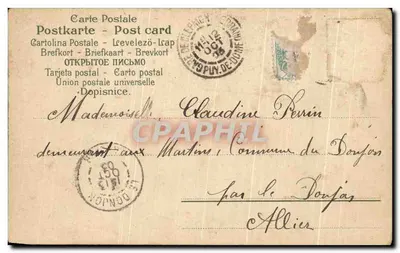 Carte Postale
Postkarte - Post card
Cartolina Postale - Levelező-Lap
Brefkort - Briefkaart - Brevkort
ОТКРЫТОЕ ПИСЬМО
Tarjeta postal - Carto postal
Union postale universelle
Dopisnice.
PUY-DE-DOME
12
OCT
Mademoiselle Claudine Perrin
demeurant aux Martins, Commune du Donjon
par le Donjon
Allier
LE DONJON
OCT